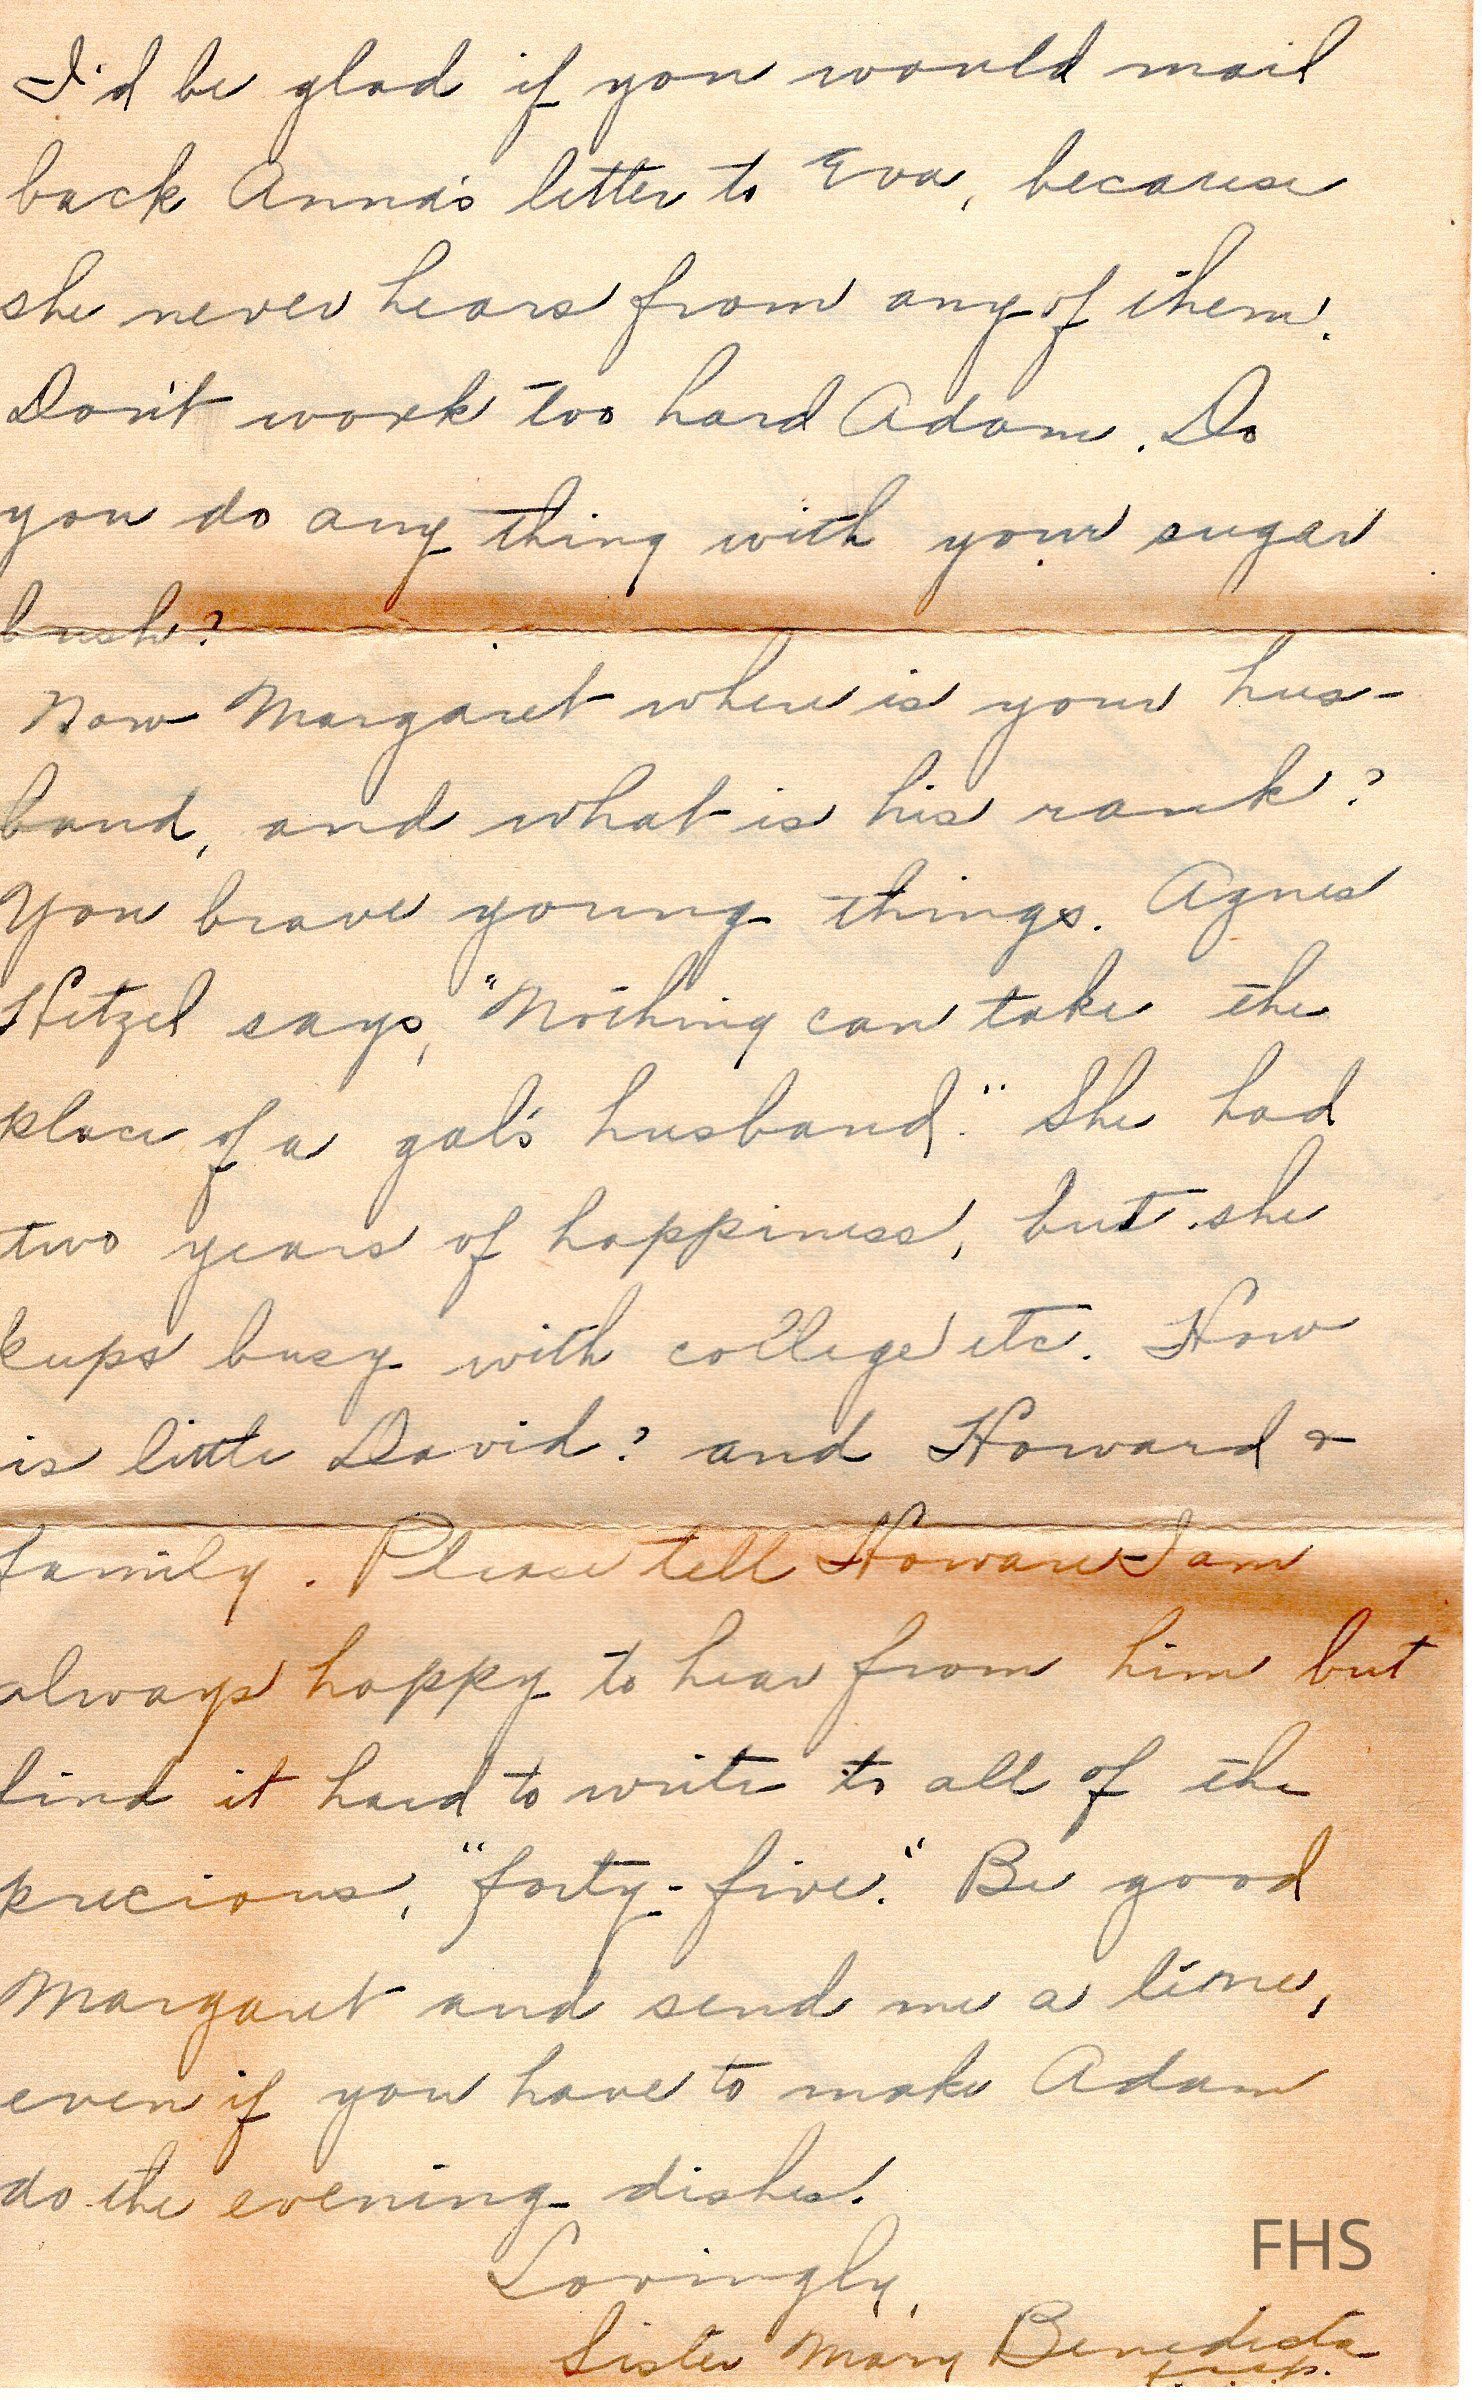 I'd be glad if you would mail
back Anna's letter to Eva, because
she never hears from any of them.
Don't work too hard Adam. Do
you do any thing with your sugar
bush?
Now Margaret where is your hus-
band, and what is his rank?
You brave young things. Agnes
Hetzel says, "Nothing can take the
place of a gal's husband." She had
two years of happiness, but she
keeps busy with college etc. How
is little David? and Howard &
family. Please tell Howard I am
always happy to hear from him but
find it hard to write to all of the
precious, "forty-five." Be good
Margaret and send me a line,
even if you have to make Adam
do the evening dishes.
Lovingly,
Sister Mary Benedicta
FHS